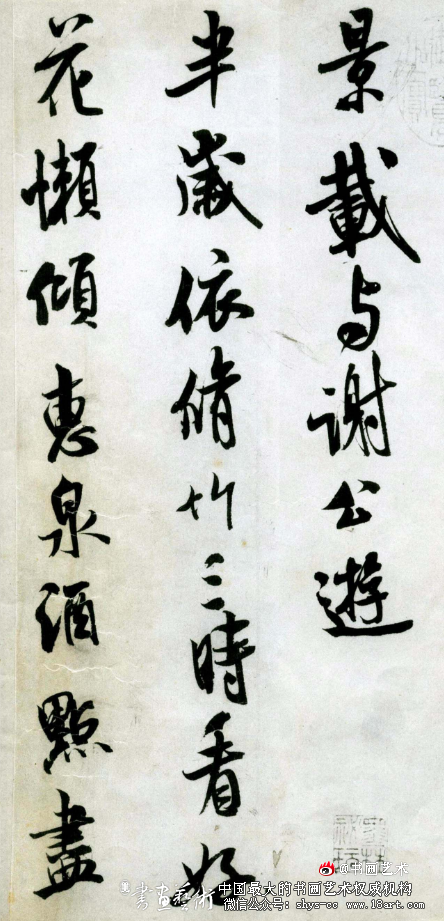 景載与謝公遊
半歲依脩竹三時看好
花懶傾惠泉酒點盡
@书画艺术
書画藝術
中国最大的书画艺术权威机构
微信公众号：shys-cc www.18art.com